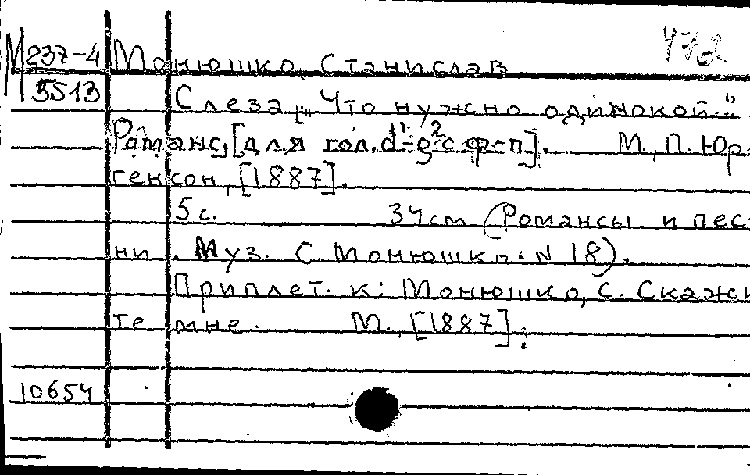 М 237-4 Монюшко, Станислав
5513 Слеза [„Что нужно одинокой"
Романс, [для гол. d¹-g² с ф-п]. М., П. Юр-
генсон, [1887].
5 с. 34 см (Романсы и пес-
ни. Муз. С Монюшко. N 18).
Приплет. к: Монюшко, С. Скажи-
те мне. М., [1887].
10654